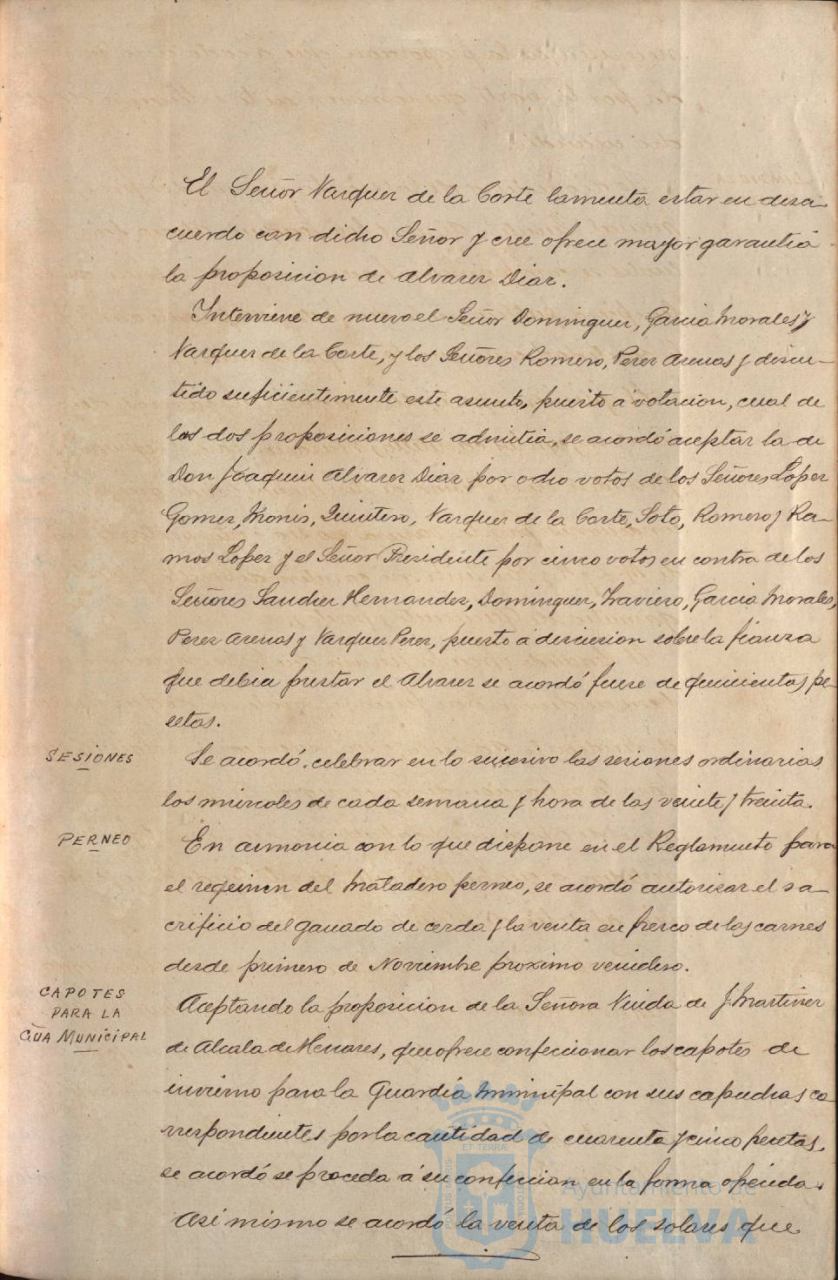 El Señor Vazquez de la Corte lamenta estar en desa-
cuerdo con dicho Señor y cree ofrece mayor garantia
la proposicion de Alvarez Diaz.
Interviene de nuevo el Señor Dominguez, Garcia Morales y
Vazquez de la Corte, y los Señores Romero, Perez Arenas y discu-
tido suficientemente este asunto, puesto a votacion, cual de
las dos proposiciones se admitia, se acordó aceptar la de
Don Joaquin Alvarez Diaz por ocho votos de los Señores Lopez
Gomez, Monis, Quintero, Vazquez de la Corte, Soto, Romero y Ra-
mos Lopez y el Señor Presidente por cinco votos en contra de los
Señores Sanchez Hernandez, Dominguez, Traviero, Garcia Morales,
Perez Arenas y Vazquez Perez, puesto a discusion sobre la fianza
que debia prestar el Alvarez se acordó fuese de quinientas pe-
setas.
SESIONES
Se acordó, celebrar en lo sucesivo las sesiones ordinarias
los miercoles de cada semana y hora de las veinte y treinta.
PERNEO
En armonia con lo que dispone en el Reglamento para
el regeimen del Matadero perneo, se acordó autorizar el sa-
crificio del ganado de cerda y la venta en fresco de las carnes
desde primero de Noviembre proximo venidero.
CAPOTES
PARA LA
GUA MUNICIPAL
Aceptando la proposicion de la Señora Viuda de J. Martinez
de Alcala de Henares, que ofrece confeccionar los capotes de
invierno para la Guardia Municipal con sus capuchas co-
rrespondientes por la cantidad de cuarenta y cinco pesetas,
se acordó se proceda á su confeccion en la forma ofrecida.
Asi mismo se acordó la venta de los solares que
Ayuntamiento de
HUELVA